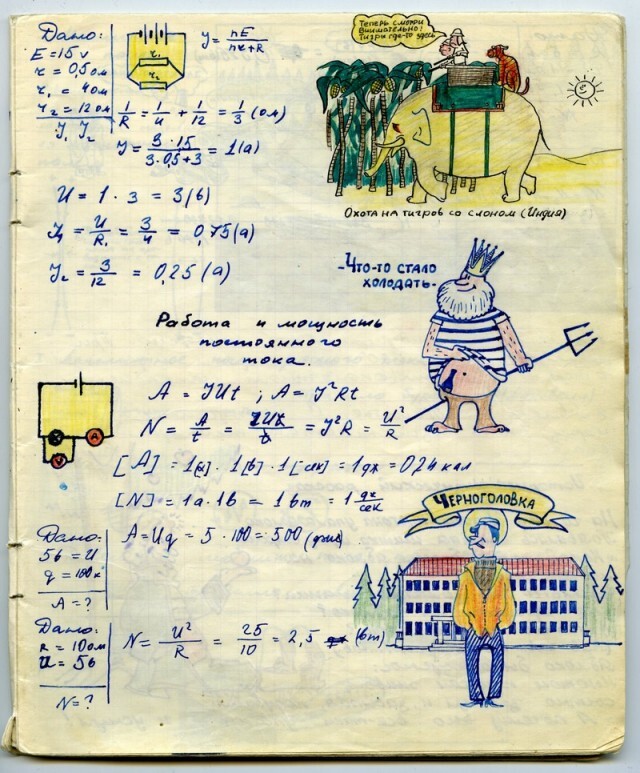 Дано:
E = 1,5 v
r = 0,5 ом
r₁ = 4 ом
r₂ = 12 ом
J₁ J₂
r₁
r₂
J = nE / (nr+R)
1/R = 1/4 + 1/12 = 1/3 (ом)
J = 3·15 / (3·0,5+3) = 1(а)
U = 1 · 3 = 3(в)
J₁ = U/R₁ = 3/4 = 0,75(а)
J₂ = 3/12 = 0,25(а)
Теперь смотри
внимательно:
Тигры где-то здесь
Охота на тигров со слоном (Индия)
- Что-то стало
холодать.
Работа и мощность
постоянного
тока.
A = JUt ; A = J²Rt
N = A/t = JUt/t = J²R = U²/R
A
V
[A] = 1[а] · 1[в] · 1[сек] = 1дж = 0,24 кал
[N] = 1а · 1в = 1вт = 1 дж/сек
Черноголовка
Дано:
5в = U
q = 100к
A = ?
A = Uq = 5 · 100 = 500 (джл)
Дано:
R = 10ом
U = 5в
N = ?
N = U²/R = 25/10 = 2,5 (вт)